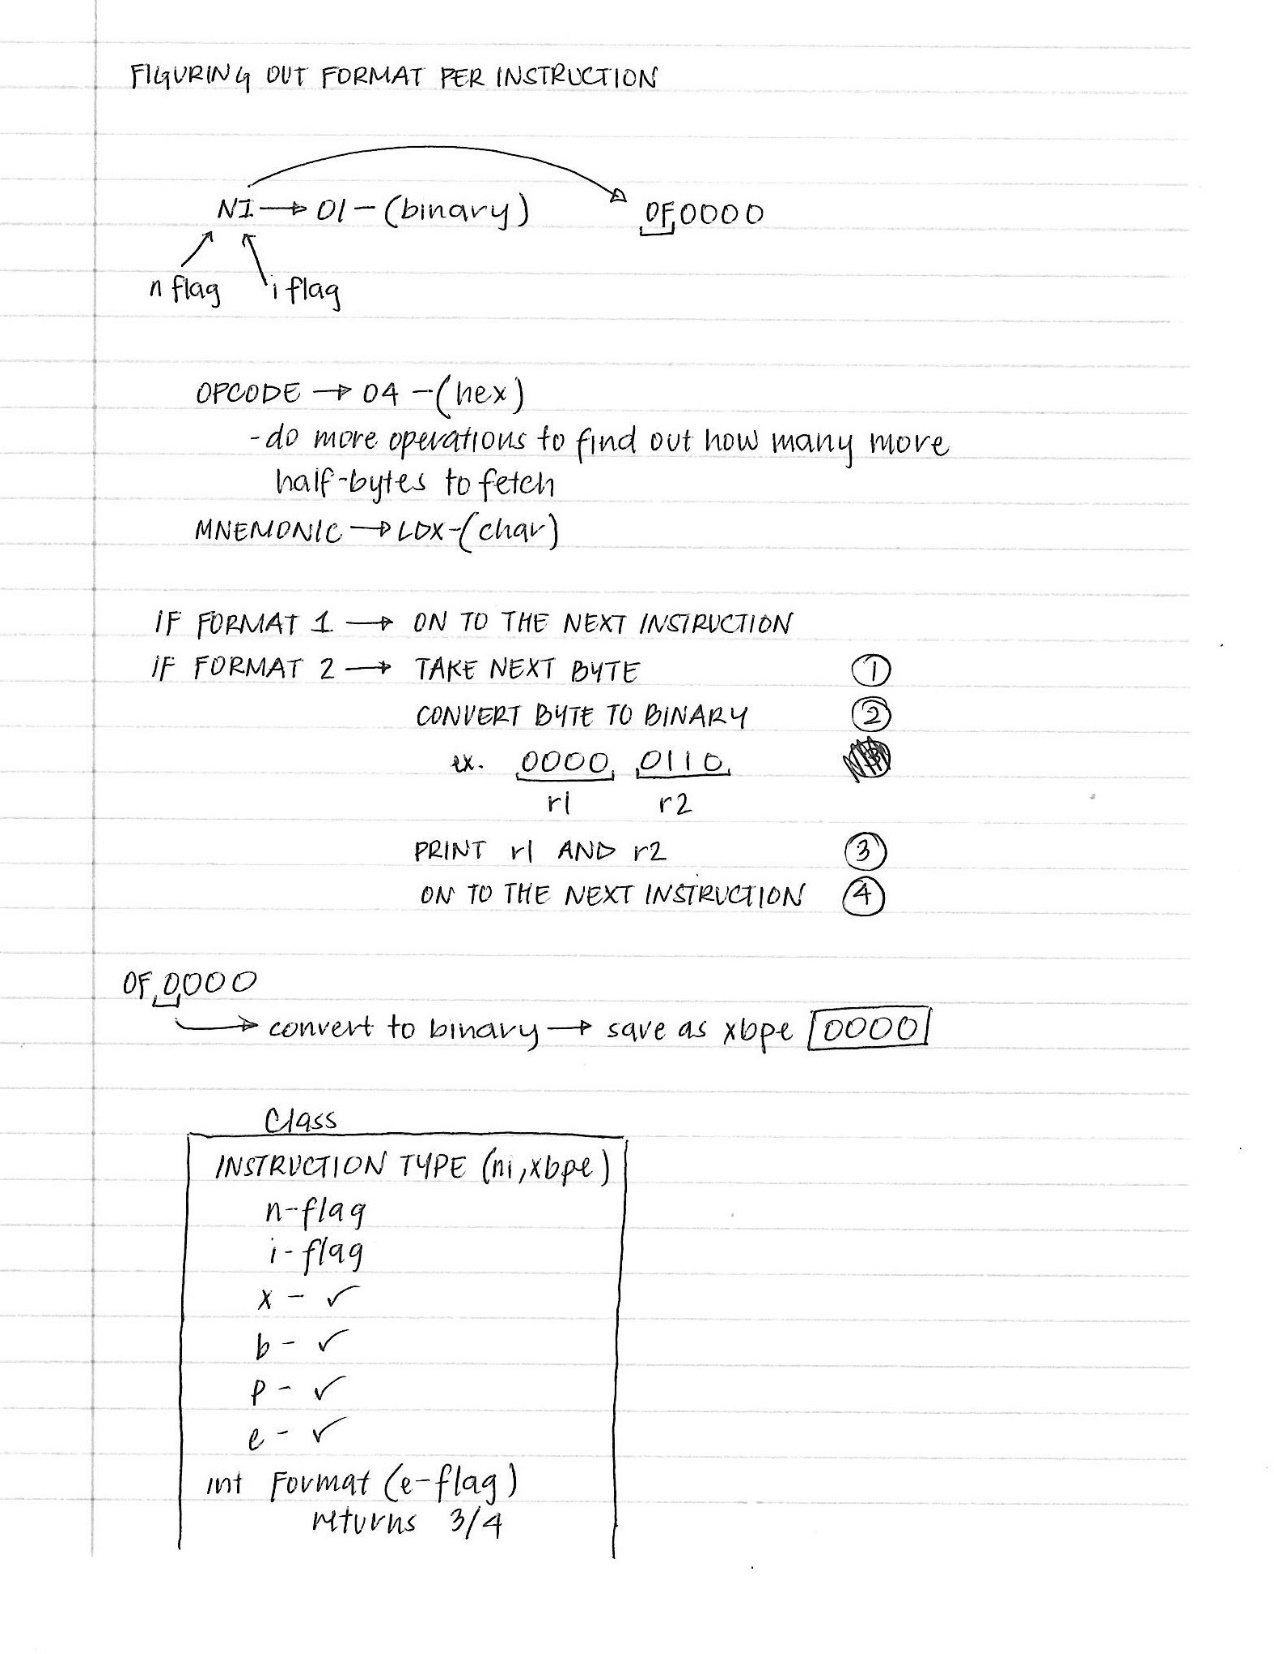 FIGURING OUT FORMAT PER INSTRUCTION
NI → 01 - (binary) 0F0000
n flag i flag
OPCODE → 04 - (hex)
- do more operations to find out how many more
half-bytes to fetch
MNEMONIC → LDX - (char)
IF FORMAT 1 → ON TO THE NEXT INSTRUCTION
IF FORMAT 2 → TAKE NEXT BYTE 1
CONVERT BYTE TO BINARY 2
ex. 0000 0110
r1 r2
PRINT r1 AND r2 3
ON TO THE NEXT INSTRUCTION 4
0F0000
→ convert to binary → save as xbpe 0000
Class
INSTRUCTION TYPE (ni, xbpe)
n-flag
i-flag
x - ✓
b - ✓
p - ✓
e - ✓
int Format (e-flag)
returns 3/4